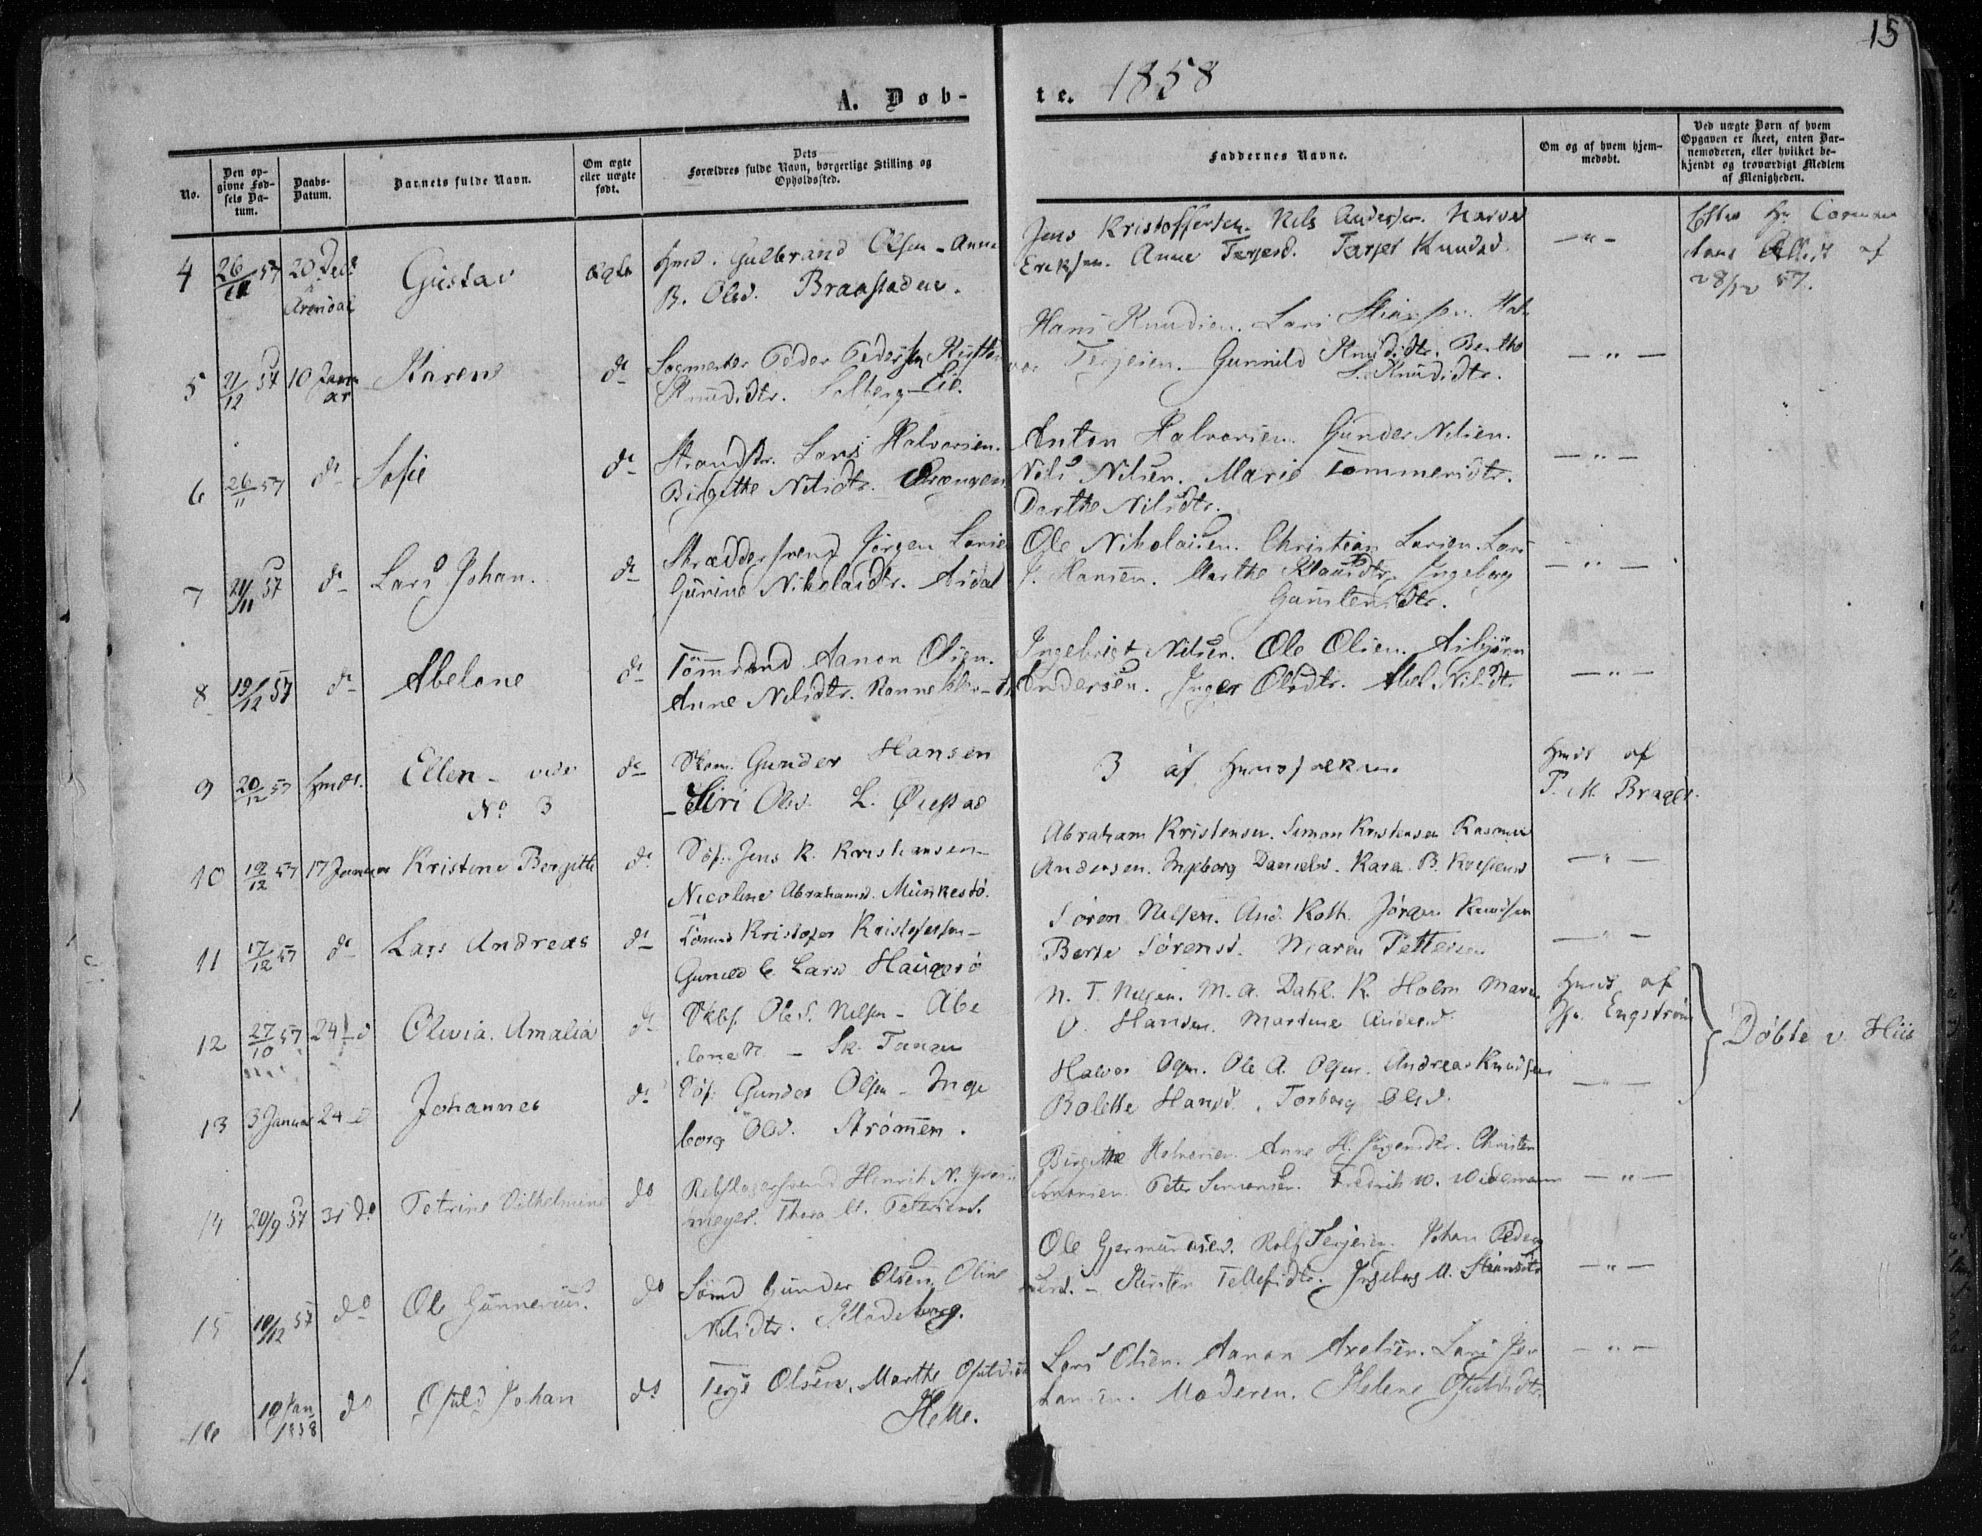 15
A. Døb-
te. 1858
No.
Den op-
givne Fød-
sels Da-
tum.
Daabs-
Datum.
Barnets fulde Navn.
Om ægte
eller uægte
født.
Dets
Forældres fulde Navn, borgerlige Stilling og
Opholdssted.
Faddernes Navne.
Om og af hvem hjem-
medøbt.
Ved uægte Børn af hvem
Opgaven er skeet, enten Bar-
nemoderen, eller hvilket be-
kjendt og troværdigt Medlem
af Menigheden.
4 26/11 57 20 Decb Arendal Gustav ægte Hmd. Gulbrand Olsen - Anne
B. Olsd. Braastaden.
Jens Kristoffersen. Nils Andersen.
Eriksen. Anne Terjesd. Tarjer Knudsd.
— " —
af
28/12 57.
5 21/12 57 10 Januar Karen do Peder Pedersen Kirsten
Knudsdtr. Solberg Eie.
Hans Knudsen. Lars
Terjesen. Gunnild Knudsdtr. Berthe
S. Knudsdtr.
— " —
6 26/11 57 do Sofie do Strandsr. Lars Halvorsen.
Birgitte Nilsdtr.
Anton Halvorsen. Gunder Nilsen.
Nils Nilsen. Marie Tommesdtr.
Dorthe Nilsdtr.
— " —
7 24/11 57 do Lars Johan. do Skræddersvend Jörgen Larsen
Gurine Nikolaidtr. Asdal
Ole Nikolaisen. Christian Larsen. Lars
J. Hansen. Marthe Klausdtr. Ingeborg
Gunstensdtr.
— " —
8 19/12 57 do Abelone do Tömmdmd Aanon Olsen.
Anne Nilsdtr.
Ingebrigt Nilsen. Ole Olsen. Asbjörn
Andersen. Inger Olsdtr. Abel. Nilsdtr.
— " —
9 20/12 57 Hmdt. Ellen - vide do Skom. Gunder Hansen
No 3
- Siri Olsd. L. Øiestad
3 af Huusfolkene
Hmdt af
P. M. Braget.
10 19/12 57 17 Januar Kristine Bergitte do Söf. Jens K. Kristiansen -
Nicoline Abrahamsd. Munkestö.
Abraham Kristensen. Simon Kristensen Rasmus
Andersen. Ingeborg Danielsd. Karen B.
— " —
11 17/12 57 do Lars Andreas do Tömmd Kristofer Kristofersen -
Guneld C. Larsd Haugesö
Sören Nilsen. And. Kath. Jörgen Knudsen
Berte Sörensd. Maren Pettersen
— " —
12 27/10 57 24 do Olivia. Amalia do Skbf. Ole S. Nilsen - Abe
lone N. - Sk.
N. T. Nilsen. M. A. Dahl. K. Holm Maren
O. Hansen. Martine Andersd.
Hmdt af
Gjr. Engström
Döbte v. Hiis
13 3 Januar 24 do Johannes do Söf. Gunder Olsen - Inge
borg Olsd. Strömen.
Halvor Ogm. Ole A. Ogm. Andreas Knudsen
Bolette Hansd. Torborg Olsd.
— " —
14 20/9 57 31 do Petrine Vilhelmine do Rebslagersvend Henrik N.
meyer. Thora M. Petersens.
Birgitte Halvorsen. Anne H. Jörgensdtr. Christen
Simonsen. Peter Simonsen. Fredrik W. Widemann
— " —
15 10/12 57 do Ole Gunnerius. do Sömd Gunder Olsen, Oline
Nilsdtr. Klodeborg.
Ole Gjermundsen. Rolf Terjesen. Johan
Kirsten Tellefsdtr. Ingeborg M.
— " —
16 10 Jan 1858 do Osuld Johan do Terje Olsen. Marthe Osuldsdtr
Helle.
Lars Olsen. Aanon Axelsen. Lars Jo-
hansen. Moderen. Helene Osuldsdtr.
— " —